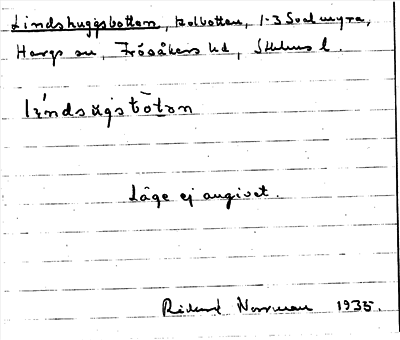 Lindshuggsbotten, kolbotten, 1-3 Svälmyra,
Hargs sn, Frösåkers hd, Sthlms l.
lìndsugsbòtən
Läge ej angivet.
Rickard Norrman 1935.